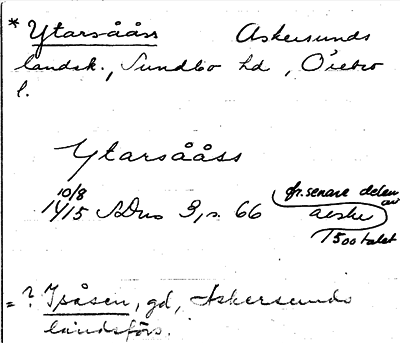 * Ytarsååss Askersunds
landsk., Sundbo hd, Örebro
l.
Ytarsååss
10/8
1415 SDns 3, s. 66 fr. senare delen
av
1500 talet
= ? Ipåsen, gd, Askersunds
landsförs.